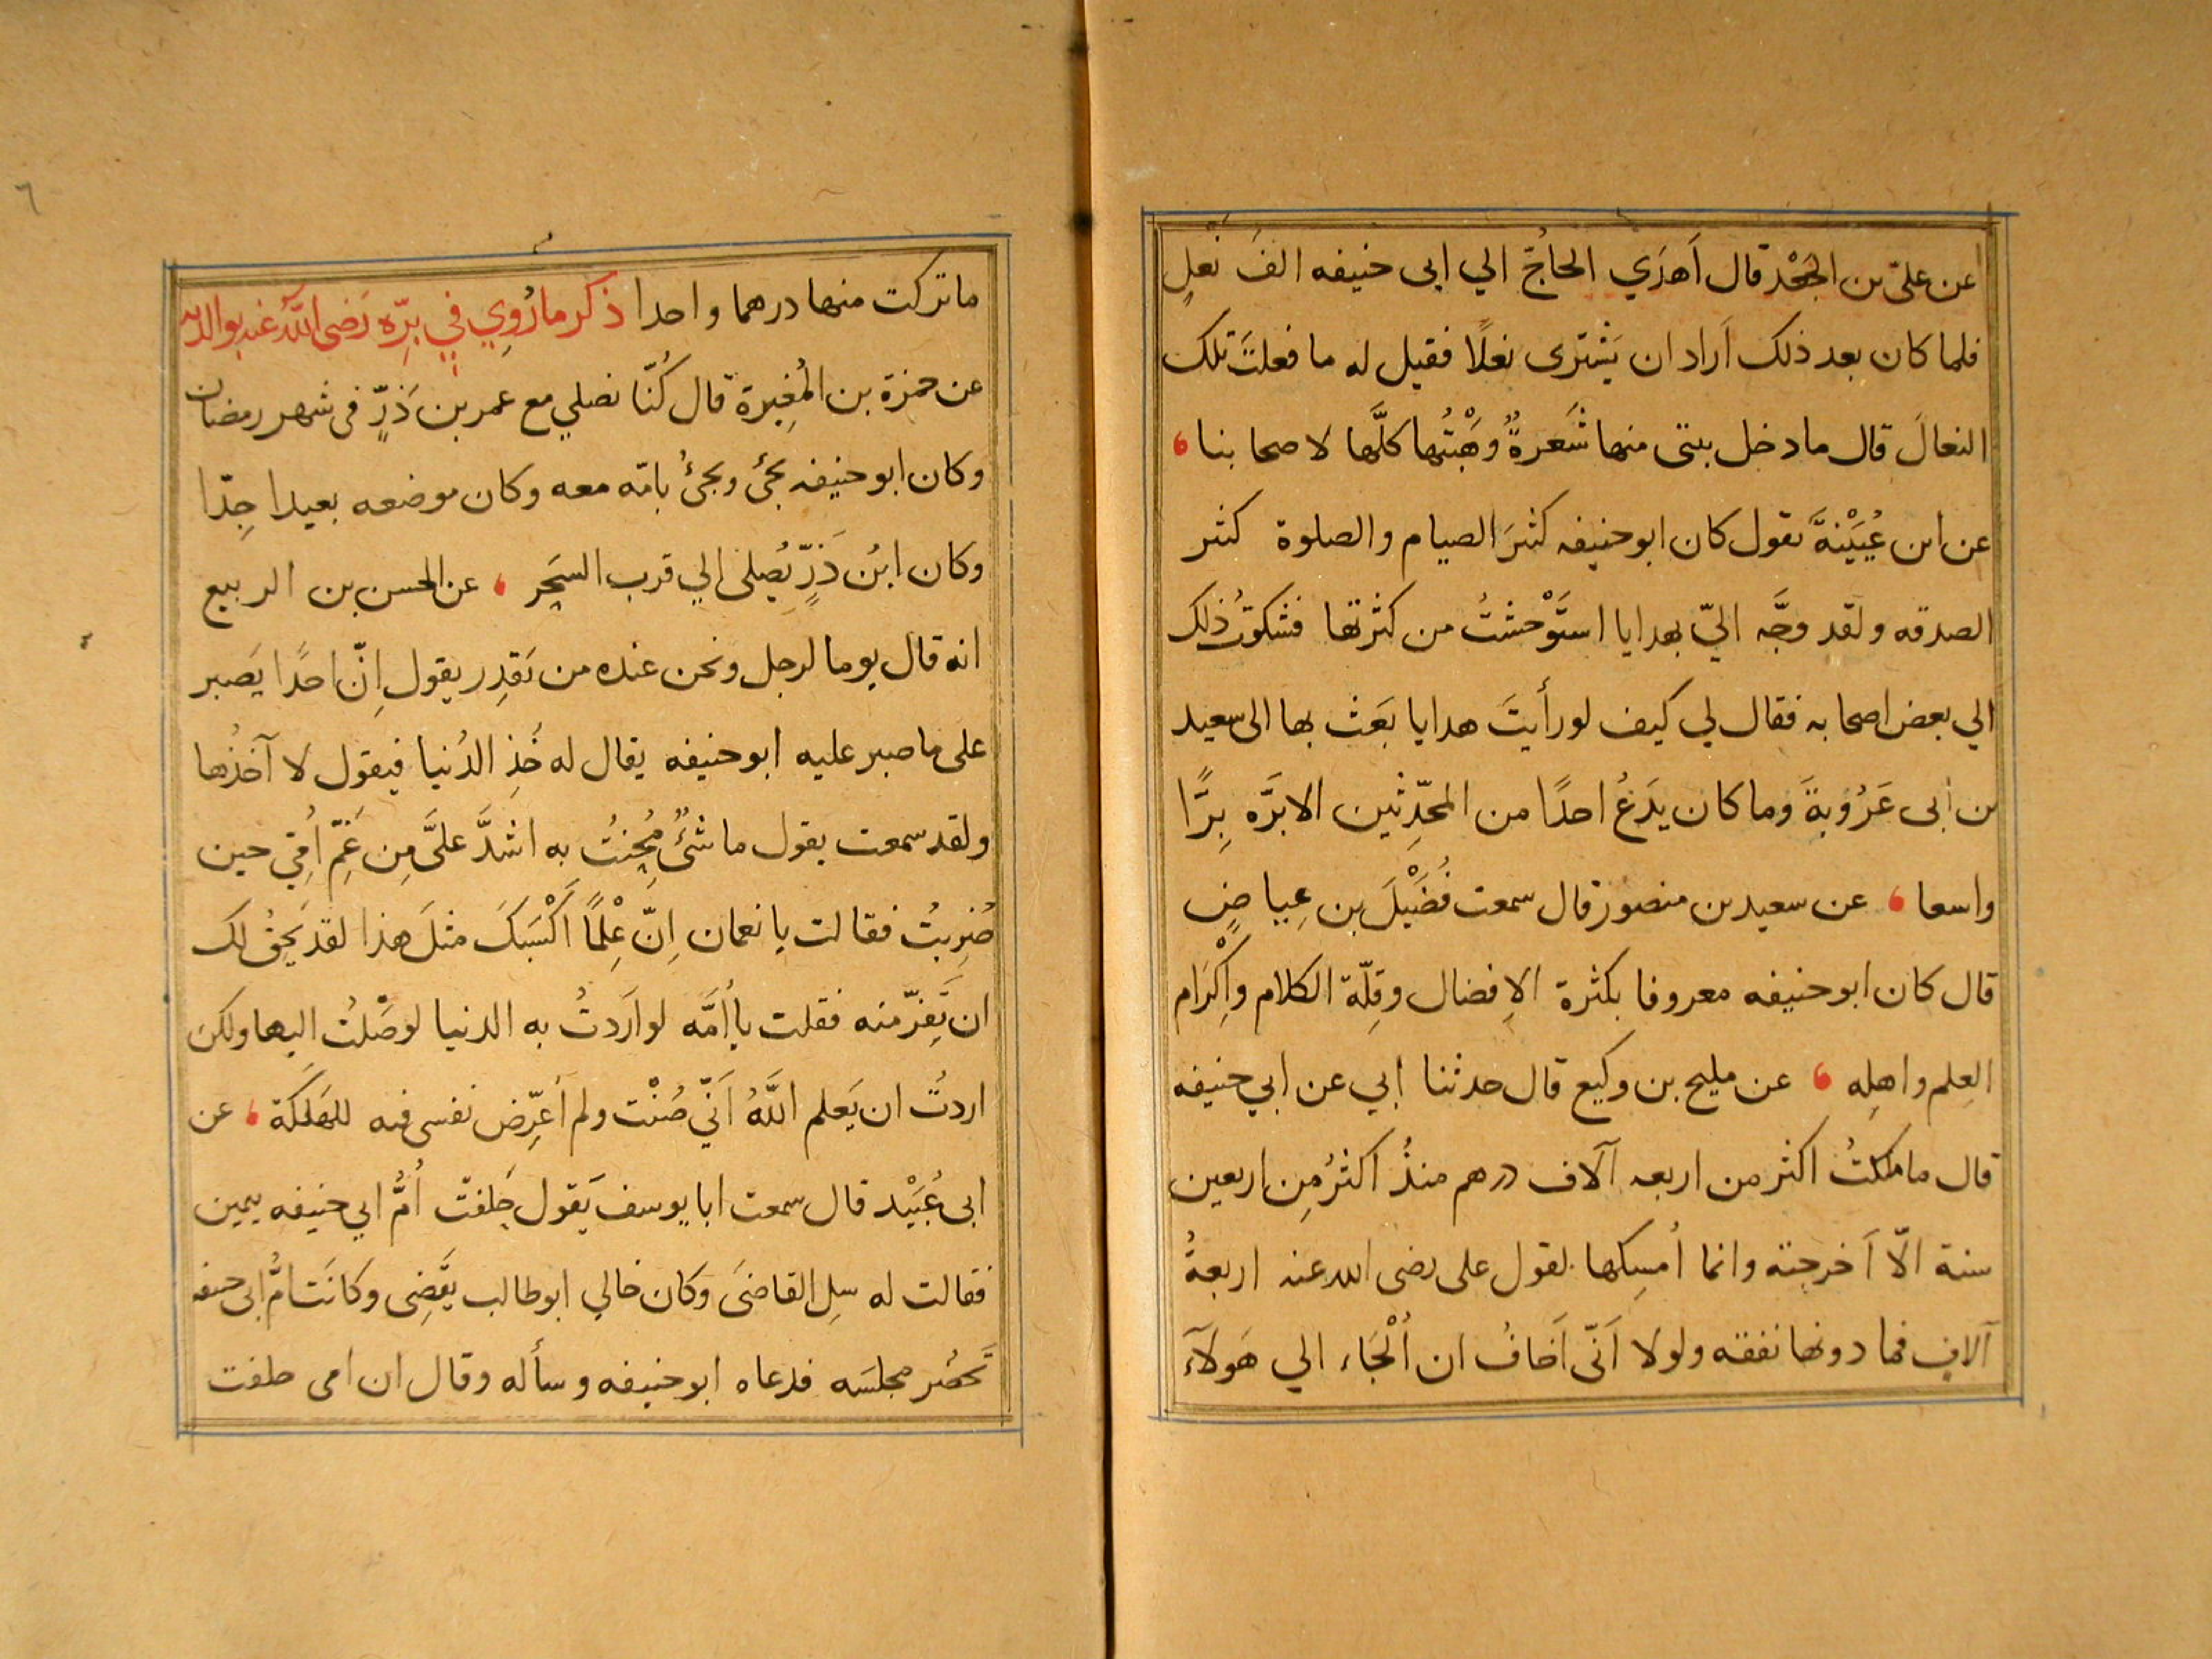 عن علىّ بن الجَعْد قال اَهدَي الحاجُّ الي ابى حنيفه الفَ نَعلٍ
فلما كان بعد ذلك اَراد ان يَشترى نعلًا فقيل له ما فعلَتَ تلك
النعالَ قال ما دخل بيتى منها شَعرةٌ وهَبْتُها كلَّها لاصحابنا
عن ابن عُيَيْنةَ يقول كان ابو حنيفه كثيرَ الصيام والصلوة كثير
الصدقه ولقد وجَّه اليّ بهدايا استَوْحشتُ من كثرتها فشكوتُ ذلك
الي بعض اصحابه فقال لي كيف لو رأيتَ هدايا بَعَث بها الى سعيد
بن أبى عَرُوبةَ وما كان يدَعُ احدًا من المحدِّثين الا برَّه بِرًّا
واسعا عن سعيد بن منصور قال سمعت فُضَيْلَ بن عِياضٍ
قال كان ابو حنيفه معروفا بكثرة الاِفضال وقِلّة الكلام واِكْرَام
العِلم واهلِه عن مليح بن وكيع قال حدثنا ابي عن ابي حنيفه
قال ما ملكتُ اكثر من اربعه آلاف درهم منذُ اكثرُ مِن اربعين
سنة الّا اَخرجته وانما أُمسِكها لقول على رضى الله عنه اربعةُ
آلاف فما دونها نفقه ولولا اَنّى اَخافُ ان اُلْجَاء الي هَولَآءَ
٦
ما تركت منها درهما واحدا ذكر ما رُوِي في بِرِّه رَضى اللّٰه عنه بوالديه
عن حمزة بن المُغِيرة قال كُنّا نصلي مع عمر بن ذَرٍّ فى شهر رمضان
وكان ابو حنيفه يجئ ويجئُ بامّه معه وكان موضعه بعيدا جِدّا
وكان ابنُ ذَرٍّ يُصلى الي قرب السَحَر عن الحسن بن الربيع
انه قال يوما لرجل ونحن عنده من يَقدِر يقول اِنّ احدًا يَصبر
على ما صبر عليه ابو حنيفه يقال له خُذِ الدُنيا فيقول لا آخذُها
ولقد سمعت يقول ما شئٌ مُحِنتُ به اشدَّ علىَّ مِن غَمِّ اُمّي حين
ضُرِبتُ فقالت يا نعمان اِنّ عِلْمًا اَكْسَبَكَ مثلَ هذا لقد يَحِقُّ لك
ان تَفِرّ منه فقلت يا أُمَّه لو اَردتُ به الدنيا لوصَلْتُ اليها ولكن
اردتُ ان يَعلم اللَّهُ اَنّي صُنْت ولم اُعرِّض نفسى فيه للهَلَكة عن
ابى عُبَيْد قال سمعت ابا يوسف يَقول حَلفتْ أُمُّ ابي حنيفه بيمين
فقالت له سلِ القاضىَ وكان خالي ابو طالب يَقضِى وكانَت امُّ ابى حنيفه
تَحضُر مجلسَه فدعاه ابو حنيفه وسأله وقال ان امى حلفت